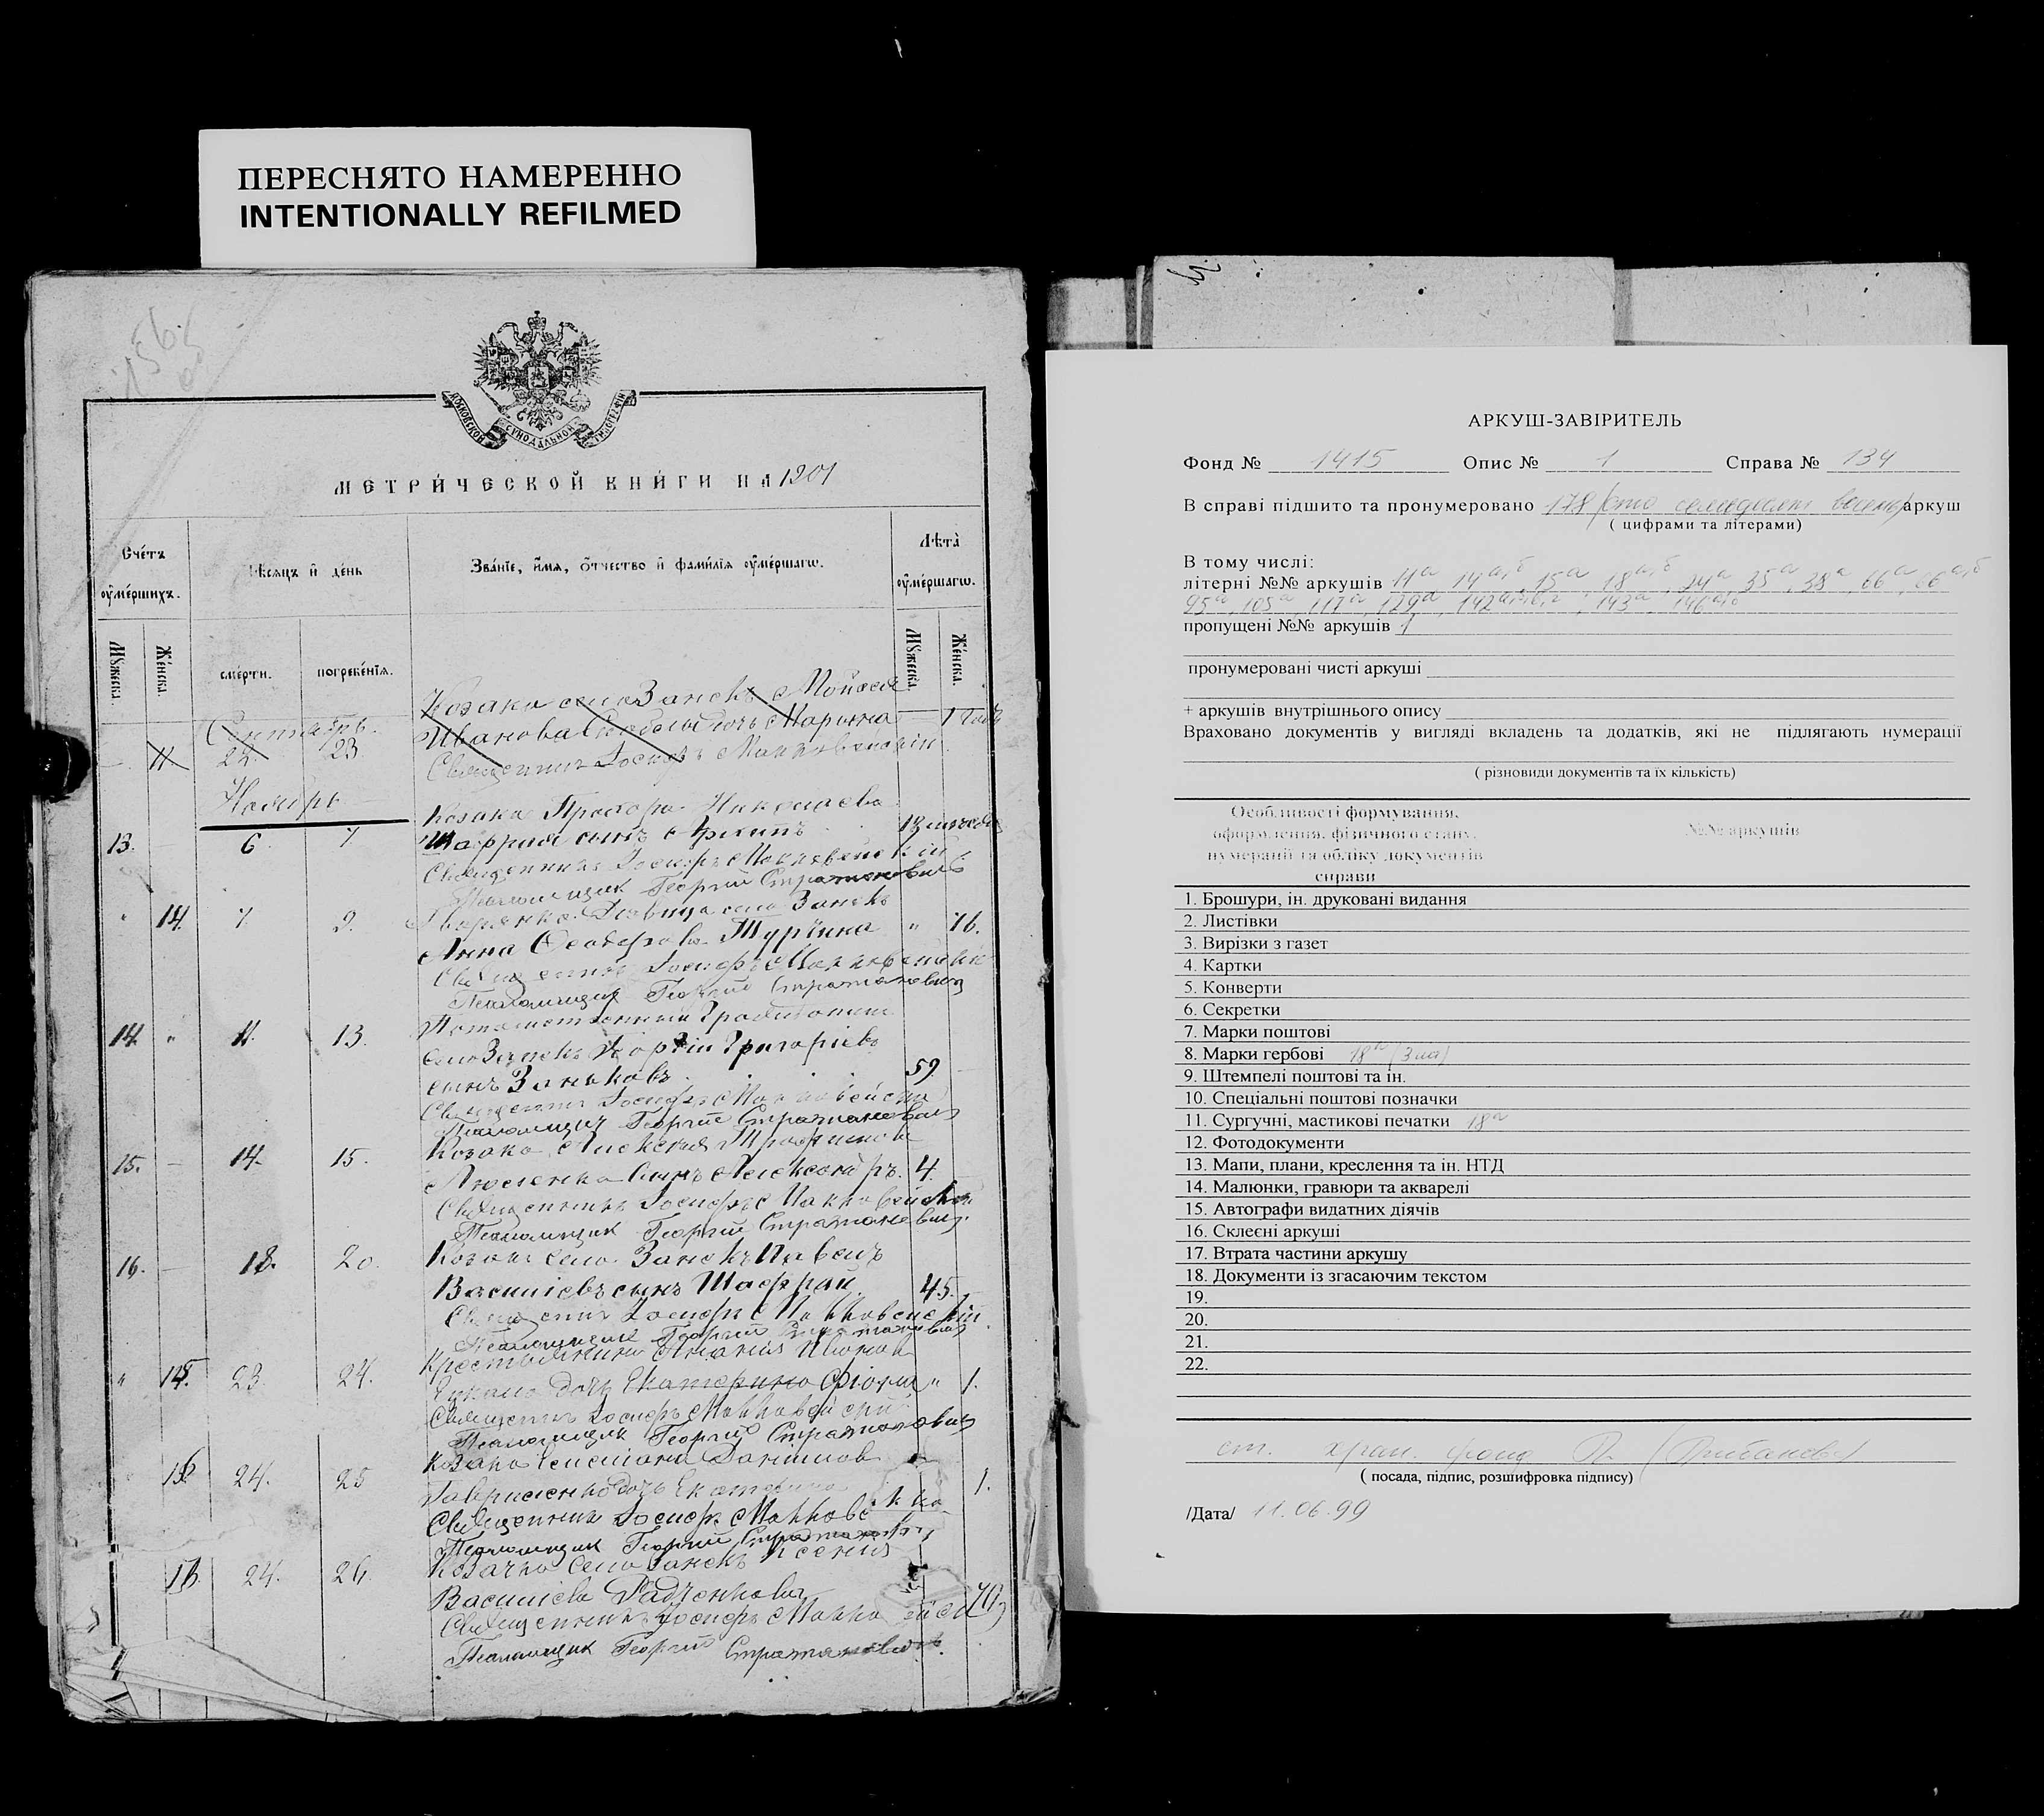 ПЕРЕСНЯТО НАМЕРЕННО
INTENTIONALLY REFILMED
156
об
МОСКОВСКОЙ СѴНОДАЛЬНОЙ ТИПОГРАФІИ
МЕТРИ́ЧЕСКОЙ КНИ́ГИ НА 1901
Сче́тъ ᲂу҆ме́ршихъ.
Мѣ́сяцъ и҆ де́нь
Зва́нїе, и҆́мя, ѻ҆́тчество и҆ фами́лїя ᲂу҆ме́ршагѡ.
Лѣ́та ᲂу҆ме́ршагѡ.
Мꙋ́жеска.
Же́нска.
сме́рти.
погребе́нїя.
Мꙋ́жеска.
Же́нска.
Сентябрь.
22. 23.
Козака села Занекъ Мойсея
Иванова дочь Марина 1
Священникъ Іосифъ Маккавейскій
Ноябрь
13. 6. 7.
Козака Прохора Николаева
Шафрана сынъ
Священникъ Іосифъ Маккавейскій
Псаломщик Георгий Стратанович
" 14. 7. 9.
Дворянка Девица села Занекъ
Анна Феодорова " 76.
Священникъ Іосифъ Маккавейскій
Псаломщик Георгий Стратанович
14. " 11. 13.
Потомственный Гражданинъ
села Занекъ Георгій Григоріевъ
сынъ Заньковъ. 59
Священникъ Іосифъ Маккавейскій
Псаломщик Георгий Стратанович
15. — 14. 15.
Козака Алексея Трофимова
сынъ Александръ. 4.
Священникъ Іосифъ Маккавейскій
Псаломщик Георгий Стратанович.
16. — 18. 20.
Козакъ села Занекъ Павелъ
Василіевъ сынъ Шафран. 45.
Священникъ Іосифъ Маккавейскій
Псаломщик Георгий Стратанович
" 15. 23. 24.
Крестьянина
дочь Екатерина " 1.
Священникъ Іосифъ Маккавейскій
Псаломщик Георгий Стратанович
16. 24. 25
Козака
Гавриленко дочь Екатерина 1.
Священникъ Іосифъ
Псаломщик Георгий Стратанович
24. 26.
Козачка села Занекъ Ксенія
Василіева Радченкова 70
Священникъ Іосифъ
Псаломщик Георгий Стратанович.
АРКУШ-ЗАВІРИТЕЛЬ
Фонд № 1415 Опис № 1 Справа № 134
В справі підшито та пронумеровано 178 (сто семьдесят восемь) аркуш
( цифрами та літерами)
В тому числі:
літерні №№ аркушів 11а, 14а,б, 15а, 18а,б, 24а, 35а, 38а, 66а, 86а,б
95а, 105а, 117а, 129а, 142а,б,в,г, 143а, 146а,б
пропущені №№ аркушів 1
пронумеровані чисті аркуші
+ аркушів внутрішнього опису
Враховано документів у вигляді вкладень та додатків, які не підлягають нумерації
( різновиди документів та їх кількість)
Особливості формування,
оформлення, фізичного стану,
нумерації та обліку документів
справи
№№ аркушів
1. Брошури, ін. друковані видання
2. Листівки
3. Вирізки з газет
4. Картки
5. Конверти
6. Секретки
7. Марки поштові
8. Марки гербові 18а (3 шт)
9. Штемпелі поштові та ін.
10. Спеціальні поштові позначки
11. Сургучні, мастикові печатки 18а
12. Фотодокументи
13. Мапи, плани, креслення та ін. НТД
14. Малюнки, гравюри та акварелі
15. Автографи видатних діячів
16. Склеєні аркуші
17. Втрата частини аркушу
18. Документи із згасаючим текстом
19.
20.
21.
22.
ст. хран. фонд
( посада, підпис, розшифровка підпису)
/Дата/ 11.06.99